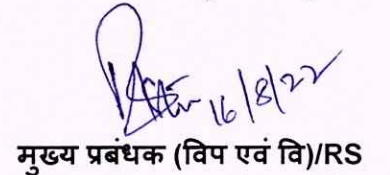 16/8/22
मुख्य प्रबंधक (विप एवं वि)/RS